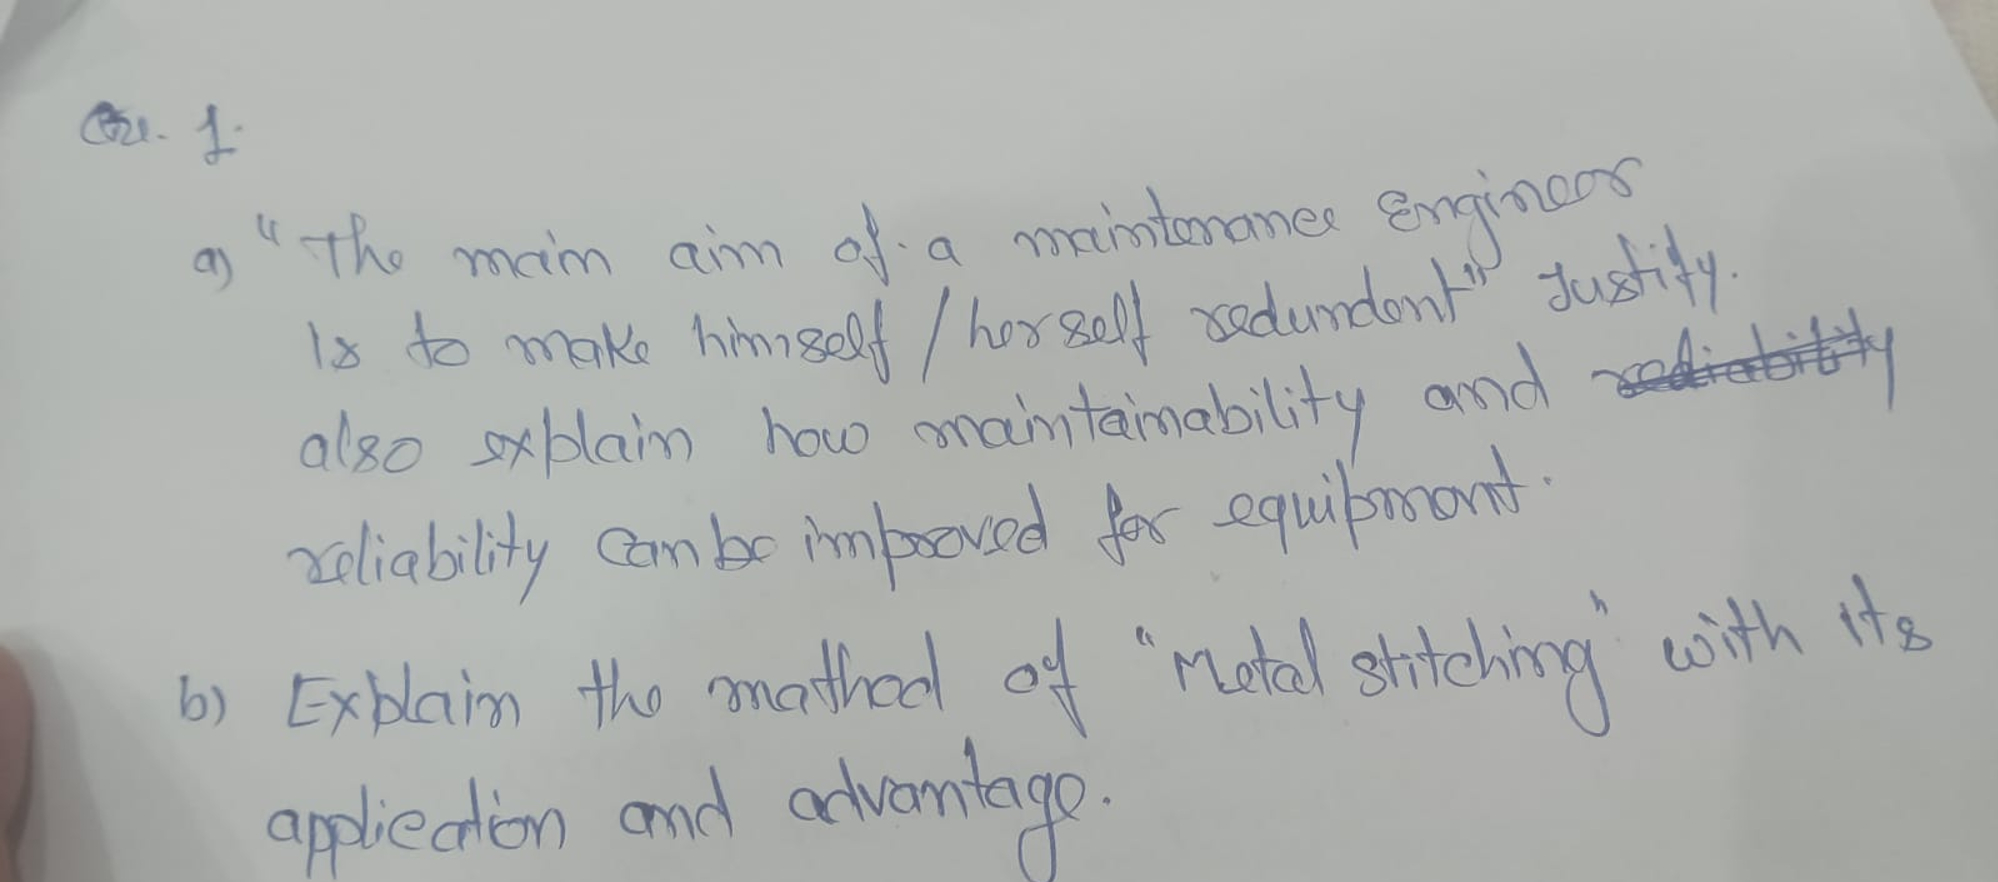 Qu. 1.
a) "The main aim of a maintenance Engineer
Is to make himself / herself redundant" Justify.
also explain how maintainability and
reliability can be improved for equipment.
b) Explain the method of "Metal stitching" with its
application and advantage.